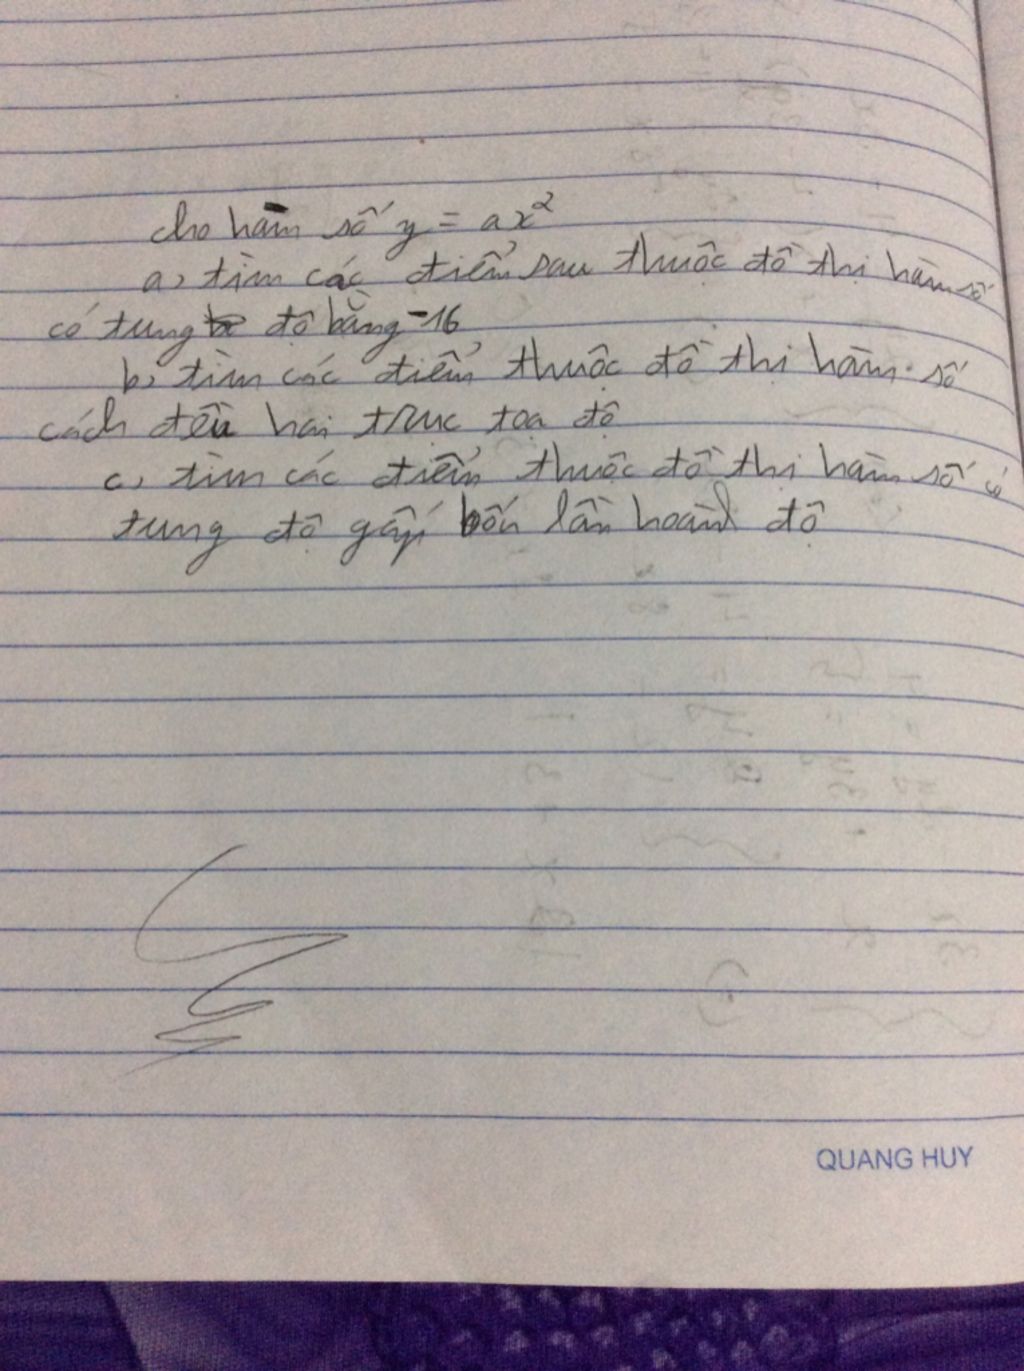 cho hàm số y = ax²
a, tìm các điểm sau thuộc đồ thị hàm số
có tung độ bằng -16
b, tìm các điểm thuộc đồ thị hàm số
cách đều hai trục toạ độ
c, tìm các điểm thuộc đồ thị hàm số có
tung độ gấp bốn lần hoành độ
QUANG HUY